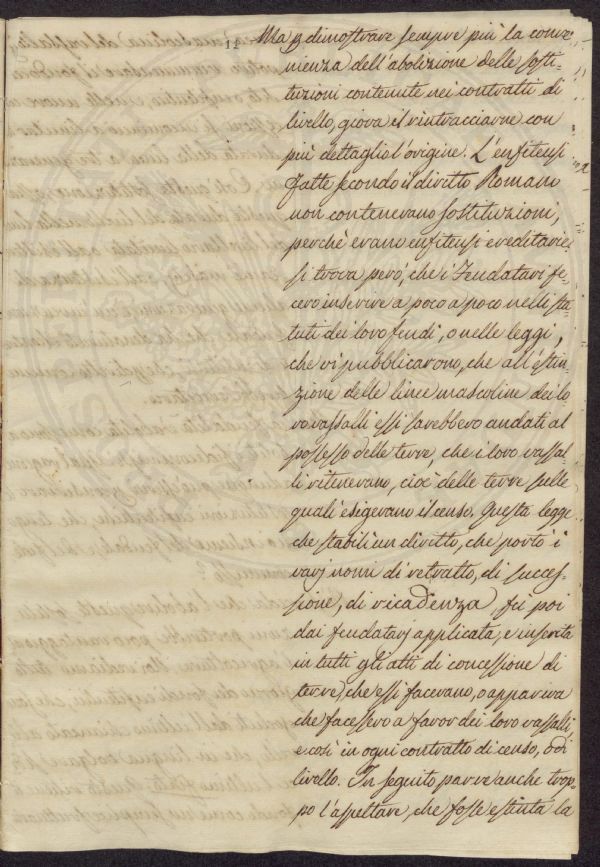 11
Ma p dimostrare sempre più la conve-
nienza dell'abolizione delle sosti-
tuzioni contenute nei contratti di
livello, giova il rintracciarne con
più dettaglio l'origine. L'enfiteusi
fatte secondo il diritto Romano
non contenevano sostituzioni,
perchè erano enfiteusi ereditarie:
si trova però, che i Feudatarj fe-
cero inserire a poco a poco nelli sta-
tuti dei loro feudi, o nelle leggi,
che vi pubblicarono, che all'estin-
zione delle linee mascoline dei lo
ro vassalli essi sarebbero andati al
possesso delle terre, che i loro vassal-
li ritenevano, cioè delle terre sulle
quali esigevano il censo. Questa legge
che stabilì un diritto, che portò i
varj nomi di retratto, di succes-
sione, di ricadenza, fù poi
dai feudatarj applicata, e inserita
in tutti gli atti di concessione di
terre, che essi facevano, o appariva
che facessero a favor dei loro vassalli,
e così in ogni contratto di censo, o di
livello. In seguito parve anche trop-
po l'aspettare, che fosse estinta la